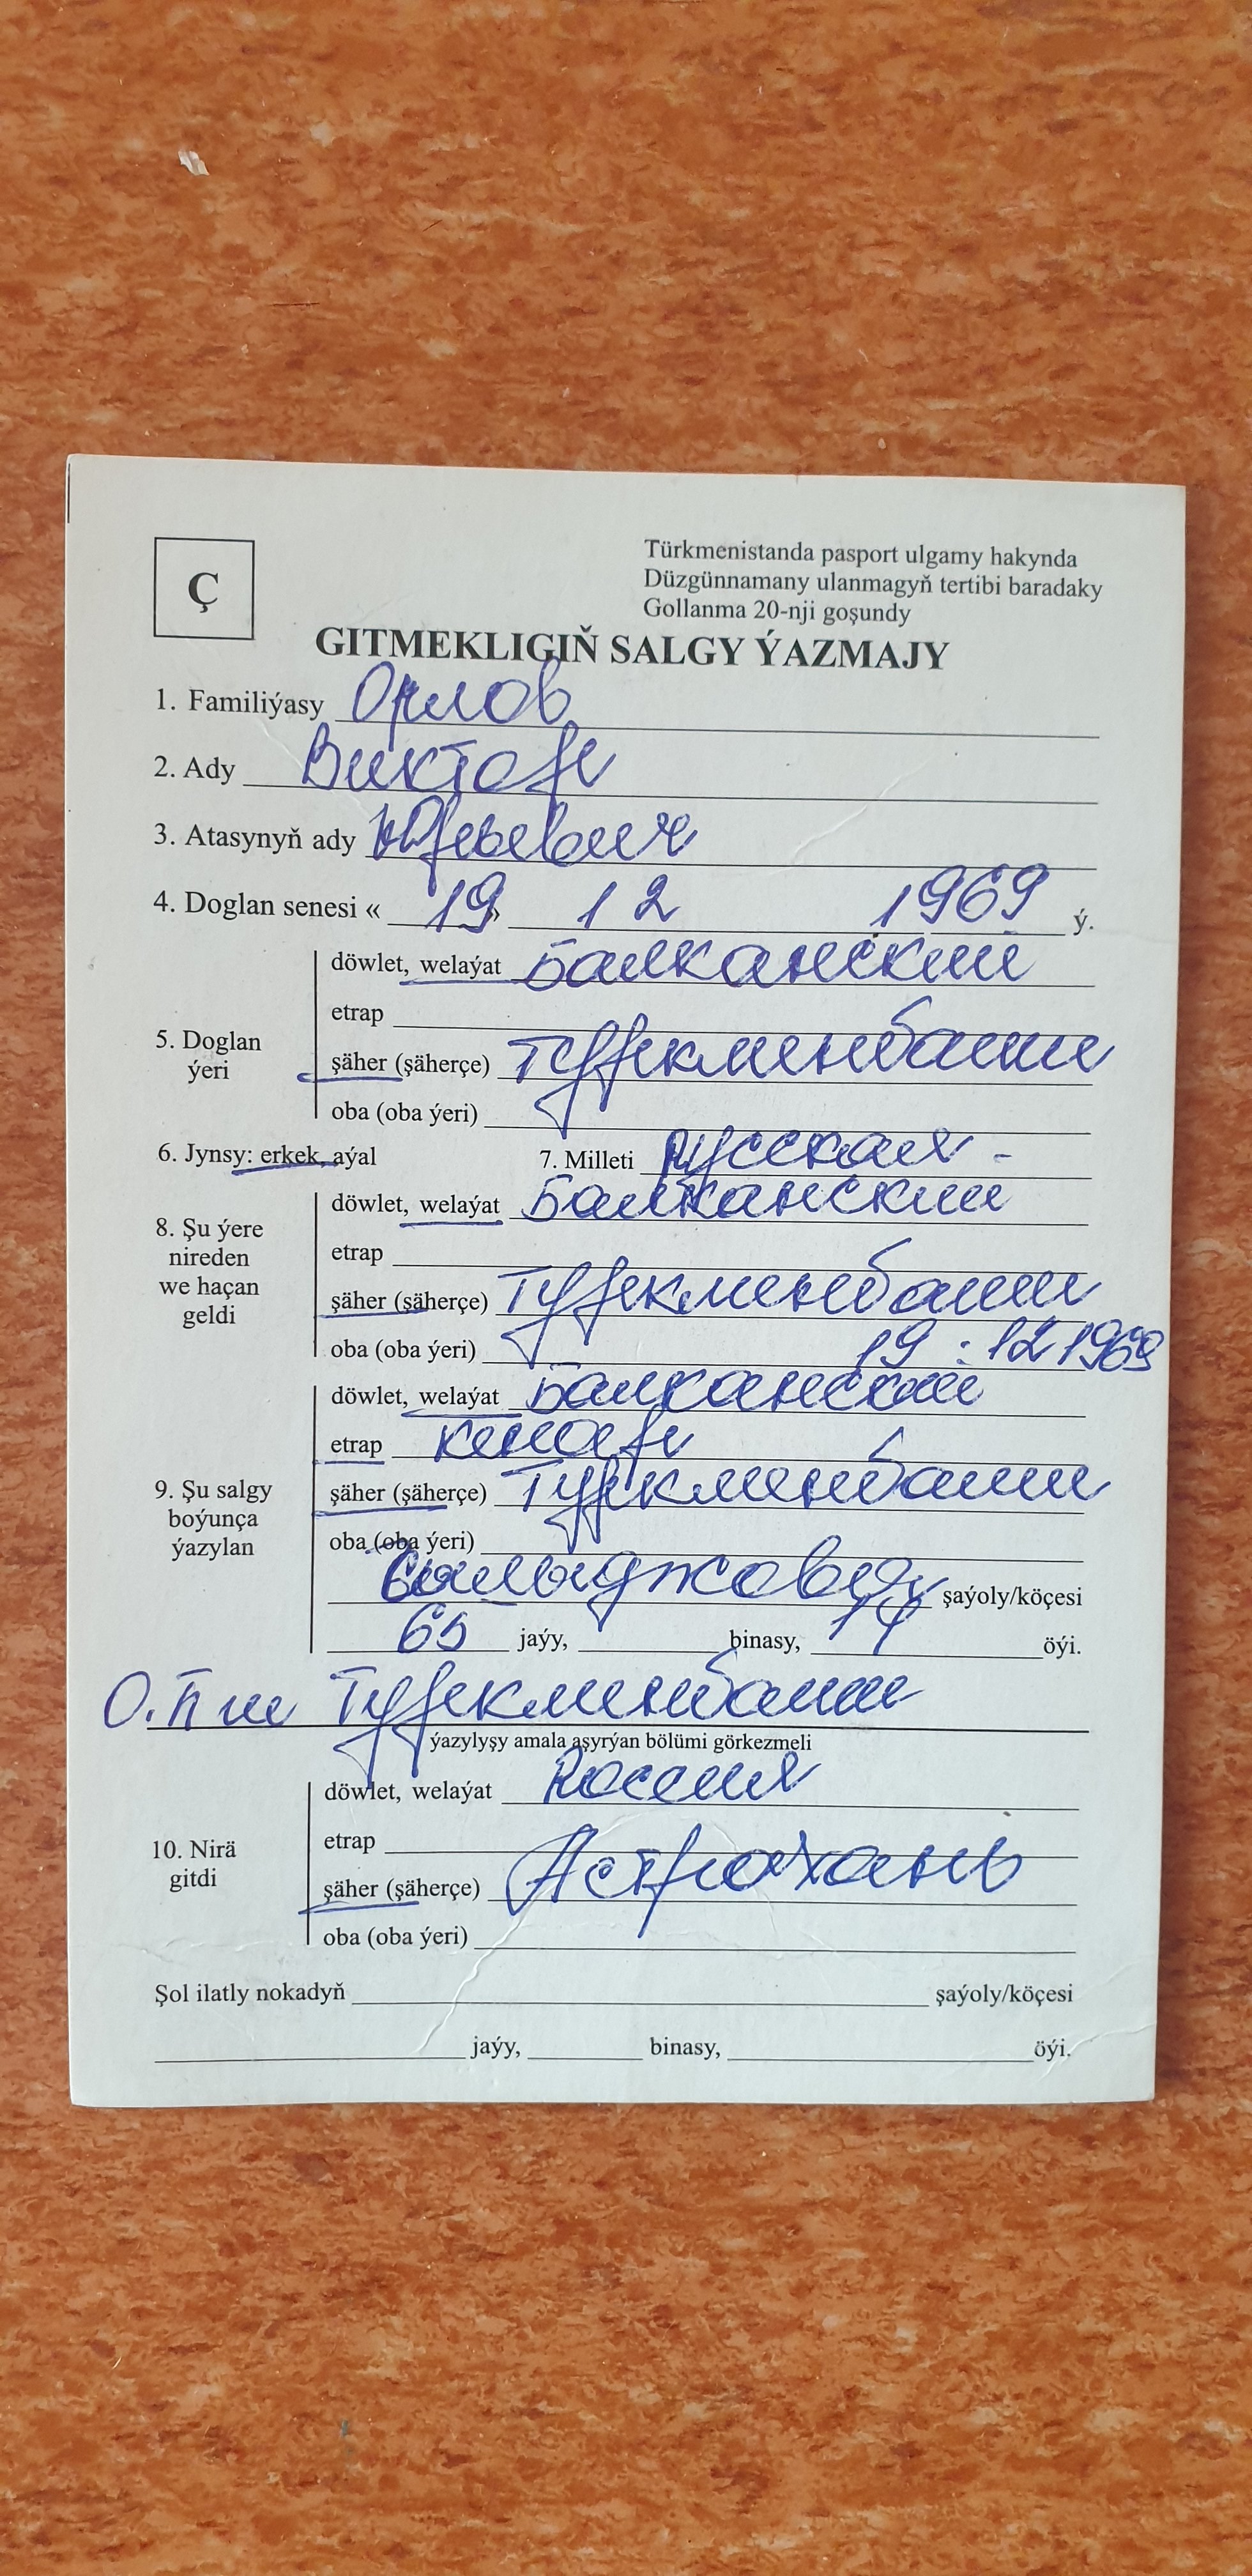 Ç
Türkmenistanda pasport ulgamy hakynda
Düzgünnamany ulanmagyň tertibi baradaky
Gollanma 20-nji goşundy
GITMEKLIGIŇ SALGY ÝAZMAJY
1. Familiýasy Орлов
2. Ady Виктор
3. Atasynyň ady Юрьевич
4. Doglan senesi « 19 » 12 1969 ý.
5. Doglan ýeri
döwlet, welaýat Балканский
etrap
şäher (şäherçe) Туркменбаши
oba (oba ýeri)
6. Jynsy: erkek, aýal 7. Milleti Русская -
8. Şu ýere nireden we haçan geldi
döwlet, welaýat Балканский
etrap
şäher (şäherçe) Туркменбаши
oba (oba ýeri) 19 . 12 1969
9. Şu salgy boýunça ýazylan
döwlet, welaýat Балканский
etrap
şäher (şäherçe) Туркменбаши
oba (oba ýeri)
şaýoly/köçesi
jaýy, binasy, 14 öýi.
Туркменбаши
ýazylyşy amala aşyrýan bölümi görkezmeli
10. Nirä gitdi
döwlet, welaýat Россия
etrap
şäher (şäherçe) Астрахань
oba (oba ýeri)
Şol ilatly nokadyň şaýoly/köçesi
jaýy, binasy, öýi.